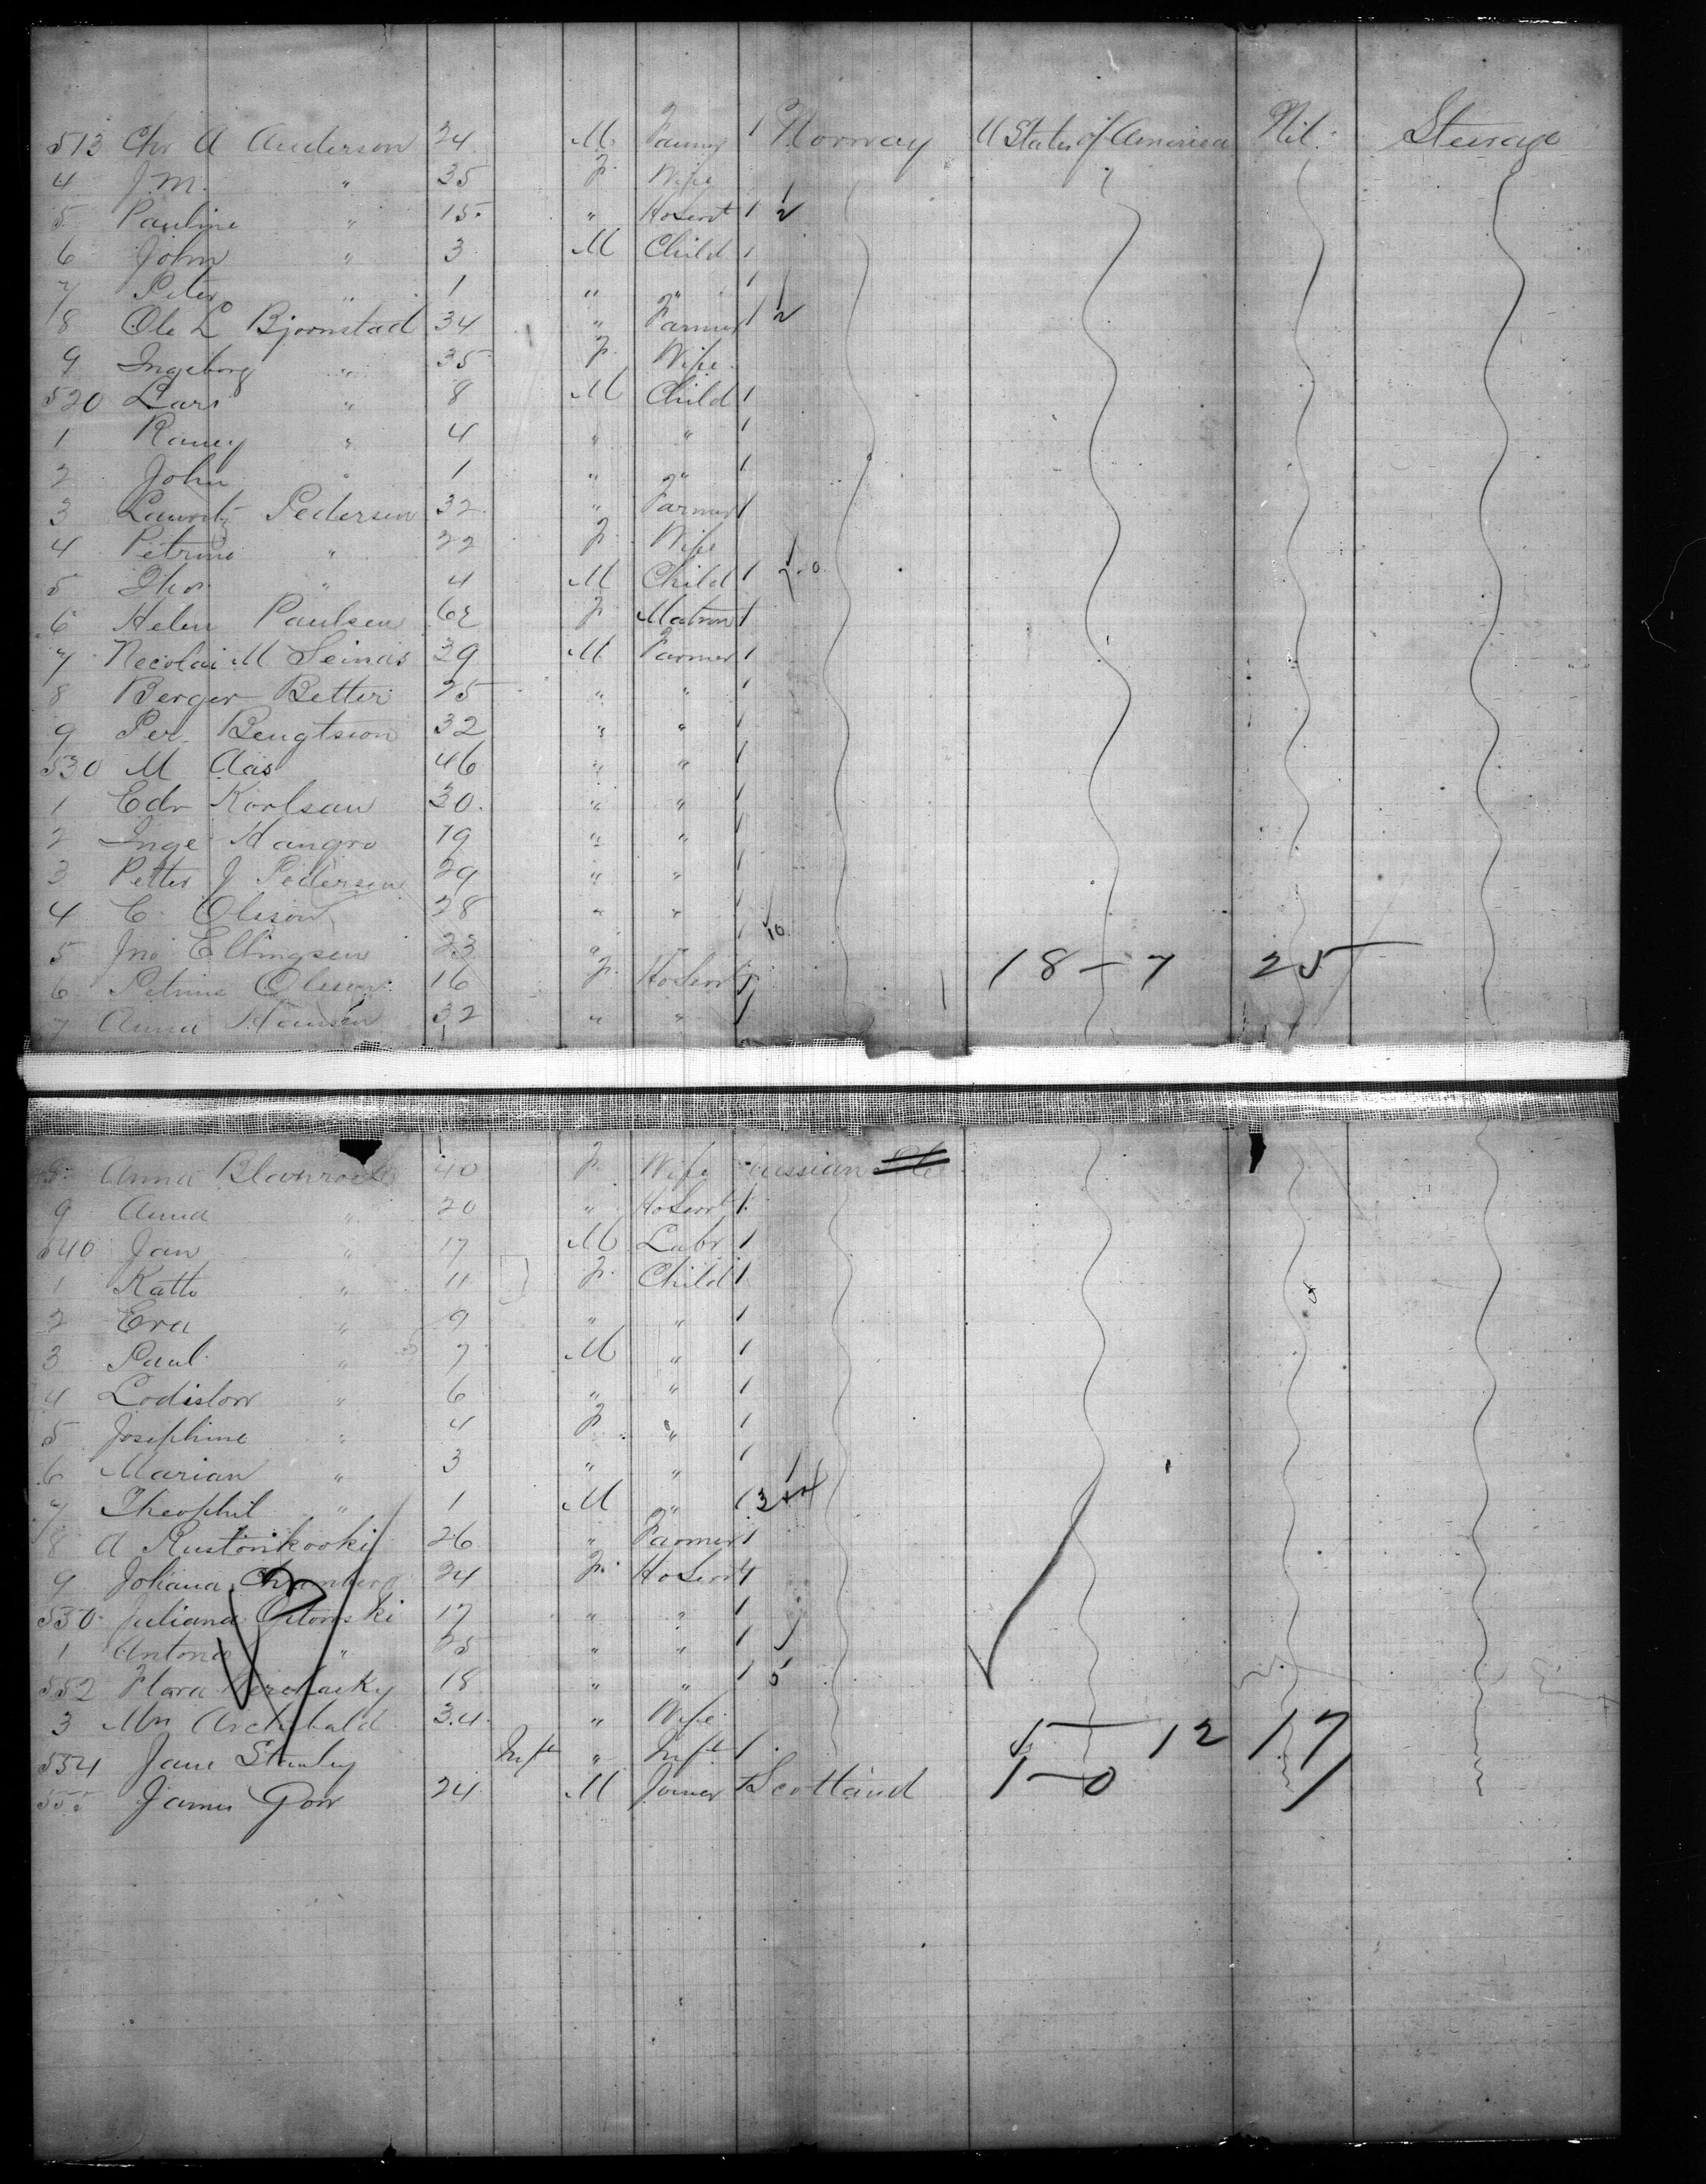 513 Chr A Anderson 34 M Farmer 1 Norway U States of America Nil Steerage
4 J. M. " 35 F Wife
5 Pauline " 15 " Hoservt 1 2
6 John " 3 M Child 1
7 Peter " 1 " " 1
8 Ole L Bjornstad 34 " Farmer 1 2
9 Ingeborg " 35 F Wife
520 Lars " 8 M Child 1
1 " 4 " " 1
2 John " 1 " " 1
3 Lauritz Pedersen 32 " Farmer 1
4 Petrine " 22 F Wife
5 Thor " 4 M Child 1
6 Helen Paulsen 62 F Matron 1
7 Necolai M 39 M Farmer 1
8 Berger Better 25 " " 1
9 Per Bengtson 32 " " 1
530 M Aas 46 " " 1
1 Edv Karlsan 30 " " 1
2 Inge Hangro 19 " " 1
3 Petter J Pedersen 29 " " 1
4 C. Olsson 28 " " 1
5 Jno Ellingsen 23 " " 1 10
6 Petrine Olsson 16 F Hoservt 18 - 7 25
7 Anna Hansen 32 " "
8 Anna 40 F Wife Russian
9 Anna " 20 " Hoservt 1
540 Jan " 17 M Labr 1
1 Katte " 11 F Child 1
2 Eva " 9 " " 1
3 Paul " 7 M " 1
4 Lodislow " 6 " " 1
5 Josephine " 4 F " 1
6 Marian " 3 " " 1
7 Theophil " 1 M " 1
8 A 26 " Farmer 1
9 Johana 24 F Hoservt
530 Juliana 17 " " 1
1 Antona " 25 " " 1
552 Flora 18 " " 1 5
3 Mrs Archibald 34 " Wife
554 Jane Stanley Inft " Inft 1 5 - 12 17
555 James Gow 24 M Joiner 1 Scotland 1 - 0 1